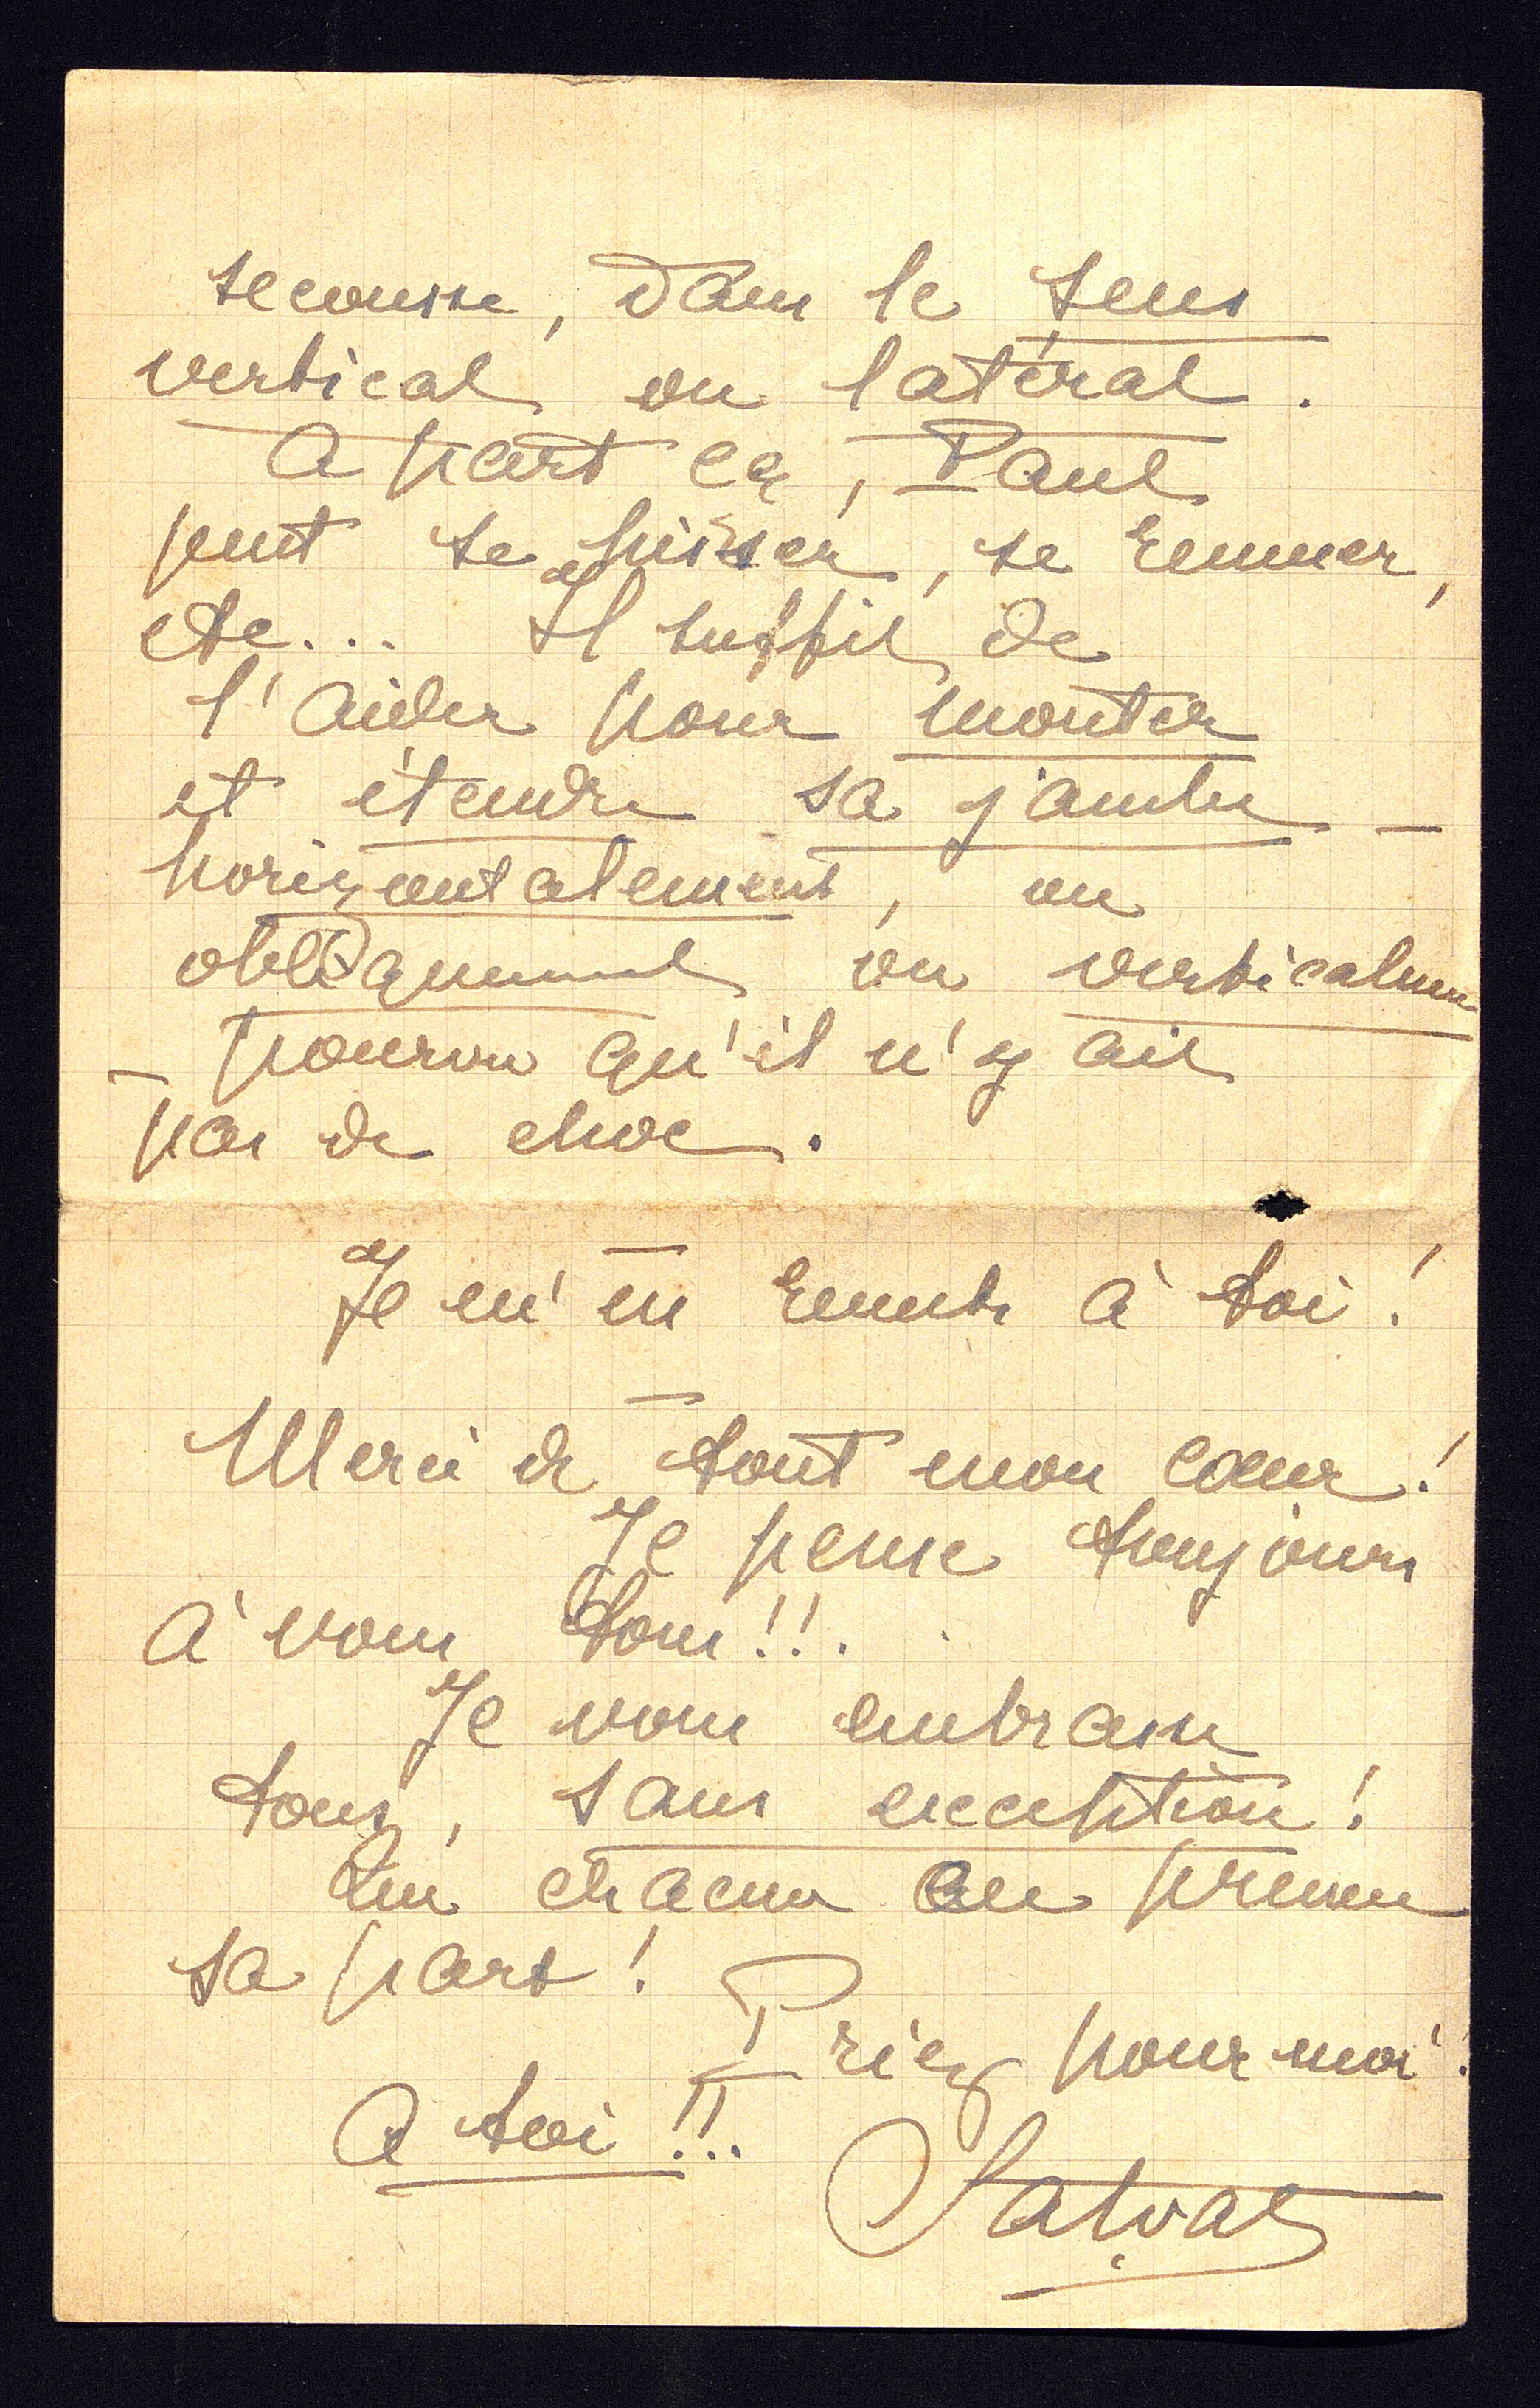 secousse, dans le sens
vertical ou latéral.
A part ça, Paul
peut se hisser, se remuer,
etc... Il suffit de
l'aider pour monter
et étendre sa jambe –
horizontalement, ou
obliquement ou verticalemen
– pourvu qu'il n'y ait
pas de choc.
–
Je m'en remets à toi !
–
Merci de tout mon cœur !
Je pense toujours
à vous tous !!.
Je vous embrasse
tous, sans exception !
Que chacun en prenne
sa part !
Priez pour moi !
A toi !!..
Salvat